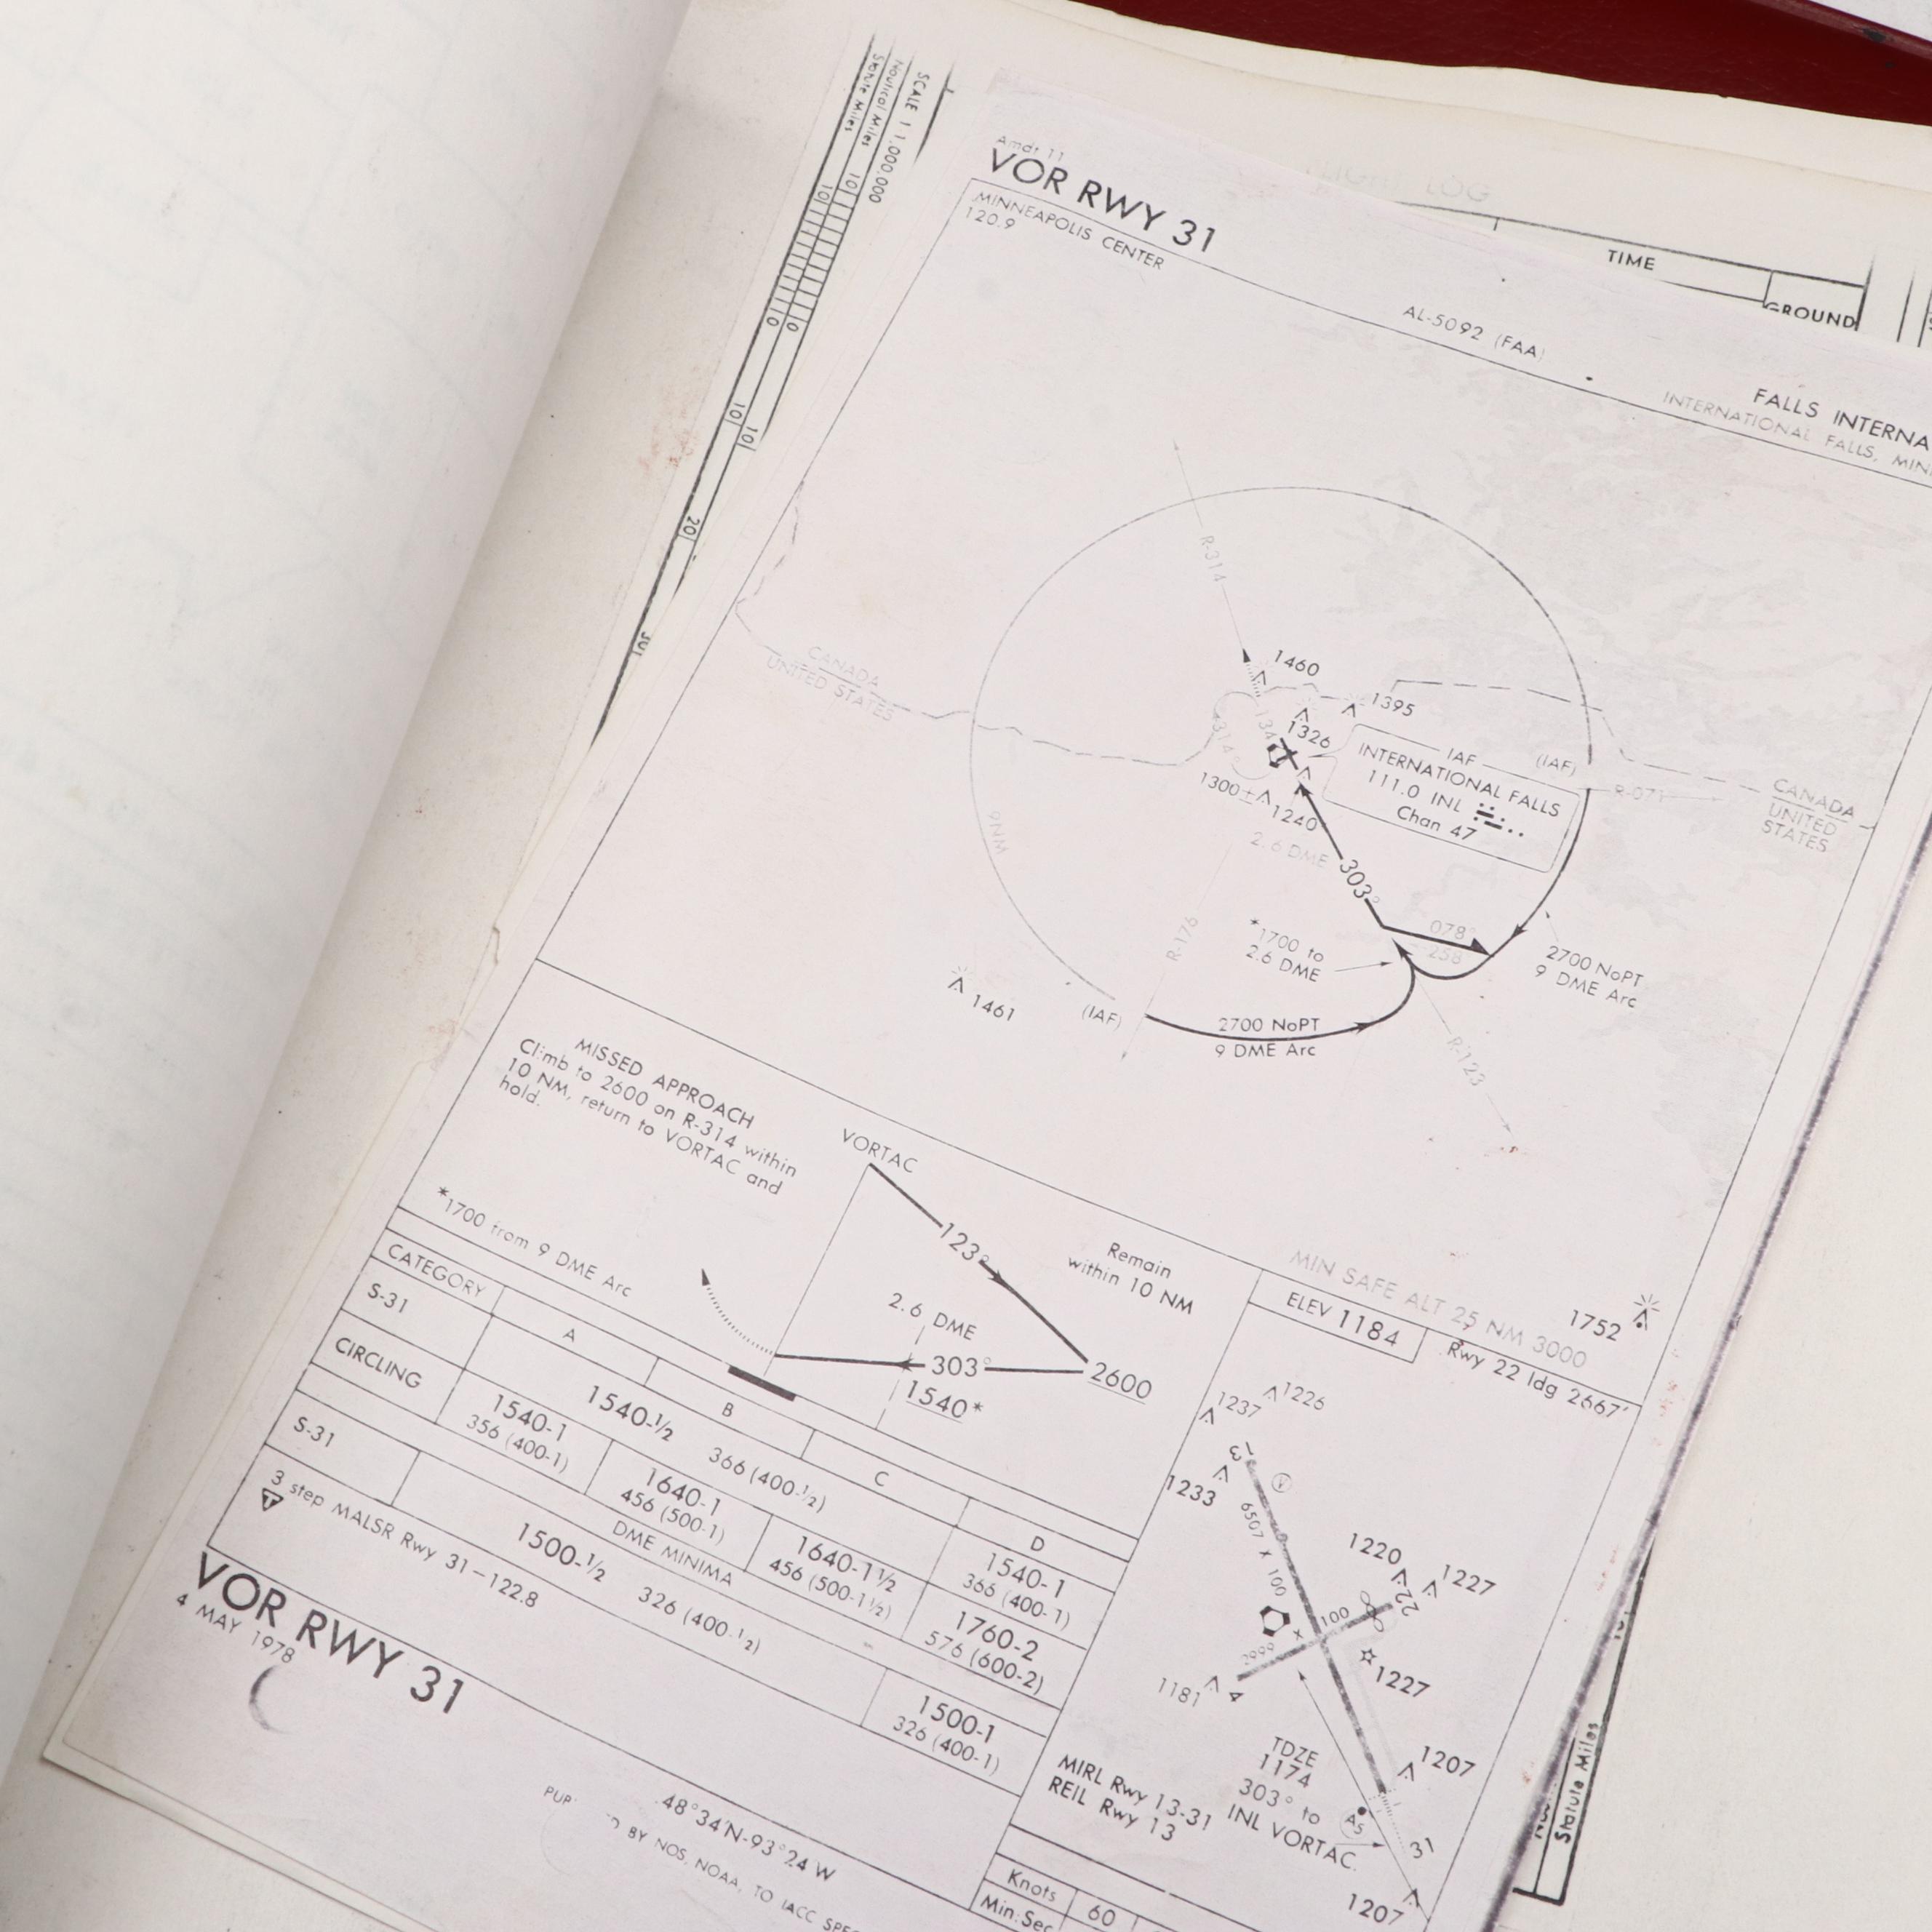 SCALE 1:1,000,000
Nautical Miles
Statute Miles
10
10
0
0
10
10
20
FLIGHT LOG
TIME
GROUND
Amdt 11
VOR RWY 31
MINNEAPOLIS CENTER
120.9
AL-5092 (FAA)
FALLS INTERNA
INTERNATIONAL FALLS, MIN
R-314
1460
1395
1326
134°
314°
CANADA
UNITED STATES
IAF
INTERNATIONAL FALLS
111.0 INL
Chan 47
(IAF)
R-071
CANADA
UNITED
STATES
1300±
1240
2.6 DME
303°
9NM
078°
258
*1700 to
2.6 DME
2700 NoPT
9 DME Arc
R-176
1461
(IAF)
2700 NoPT
9 DME Arc
R-123
MISSED APPROACH
Climb to 2600 on R-314 within
10 NM, return to VORTAC and
hold.
VORTAC
123°
Remain
within 10 NM
*1700 from 9 DME Arc
2.6 DME
303°
2600
1540*
MIN SAFE ALT 25 NM 3000
1752
ELEV 1184
Rwy 22 ldg 2667'
CATEGORY
A
B
C
D
S-31
1540-½ 366 (400-½)
1540-1
366 (400-1)
CIRCLING
1540-1
356 (400-1)
1640-1
456 (500-1)
1640-1½
456 (500-1½)
1760-2
576 (600-2)
DME MINIMA
S-31
1500-½ 326 (400-½)
1500-1
326 (400-1)
3 step MALSR Rwy 31-122.8
T
VOR RWY 31
4 MAY 1978
48°34'N-93°24'W
BY NOS, NOAA, TO IACC
1237
1226
13
1233
6507 X 100
1220
1227
22
100
X
2999
1227
1181
4
TDZE
1174
303° to
INL VORTAC.
1207
A5
31
1207
MIRL Rwy 13-31
REIL Rwy 13
Knots
60
Min:Sec
Statute Miles